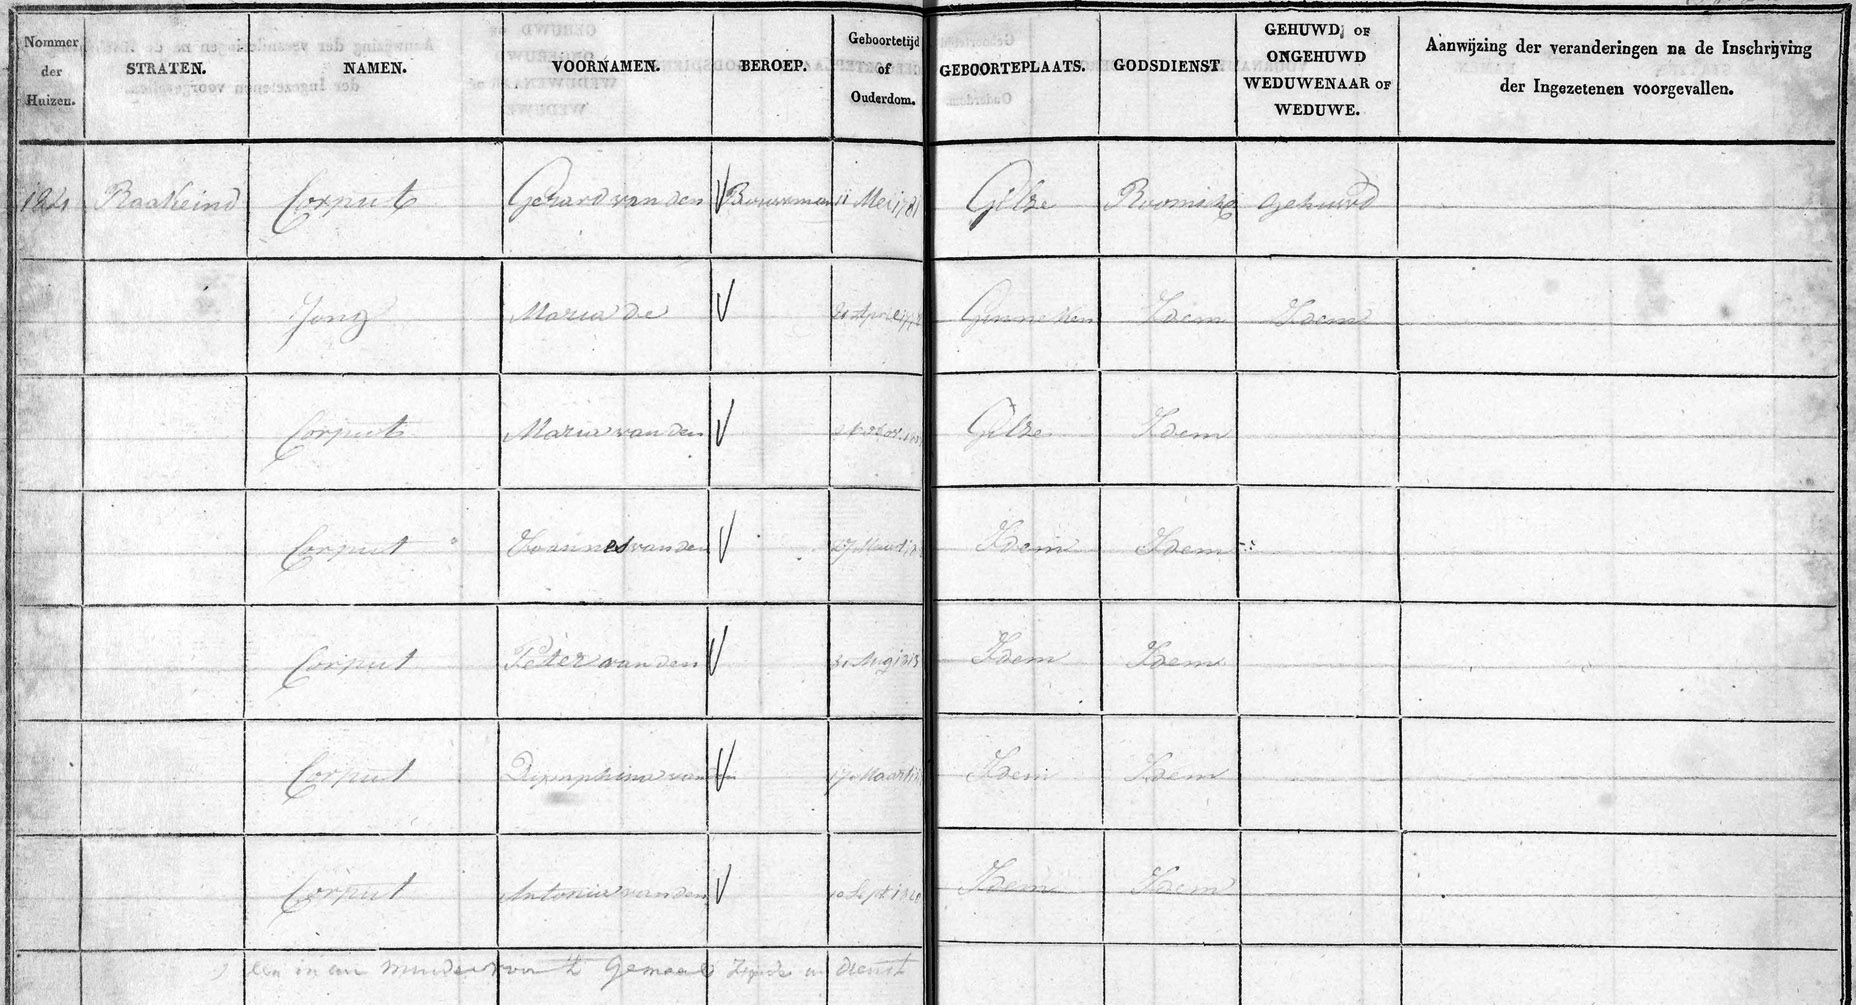 Nommer der Huizen. STRATEN. NAMEN. VOORNAMEN. BEROEP. Geboortetijd of Ouderdom. GEBOORTEPLAATS. GODSDIENST GEHUWD, OF ONGEHUWD WEDUWENAAR OF WEDUWE. Aanwijzing der veranderingen na de Inschrijving der Ingezetenen voorgevallen.
Raakeind Corput Gerard van den Bouwman 11 Mei 1781 Gilze Roomsch Gehuwd
Jong Maria de April Ginneken Idem Idem
Corput Maria van den Gilze Idem
Corput Joannes van den 27 Maart Idem Idem
Corput Peter van den 31 Aug 1813 Idem Idem
Corput Dijmphina van den 17 Maart Idem Idem
Corput Antonia van den Sept Idem Idem
Gemaal dienst